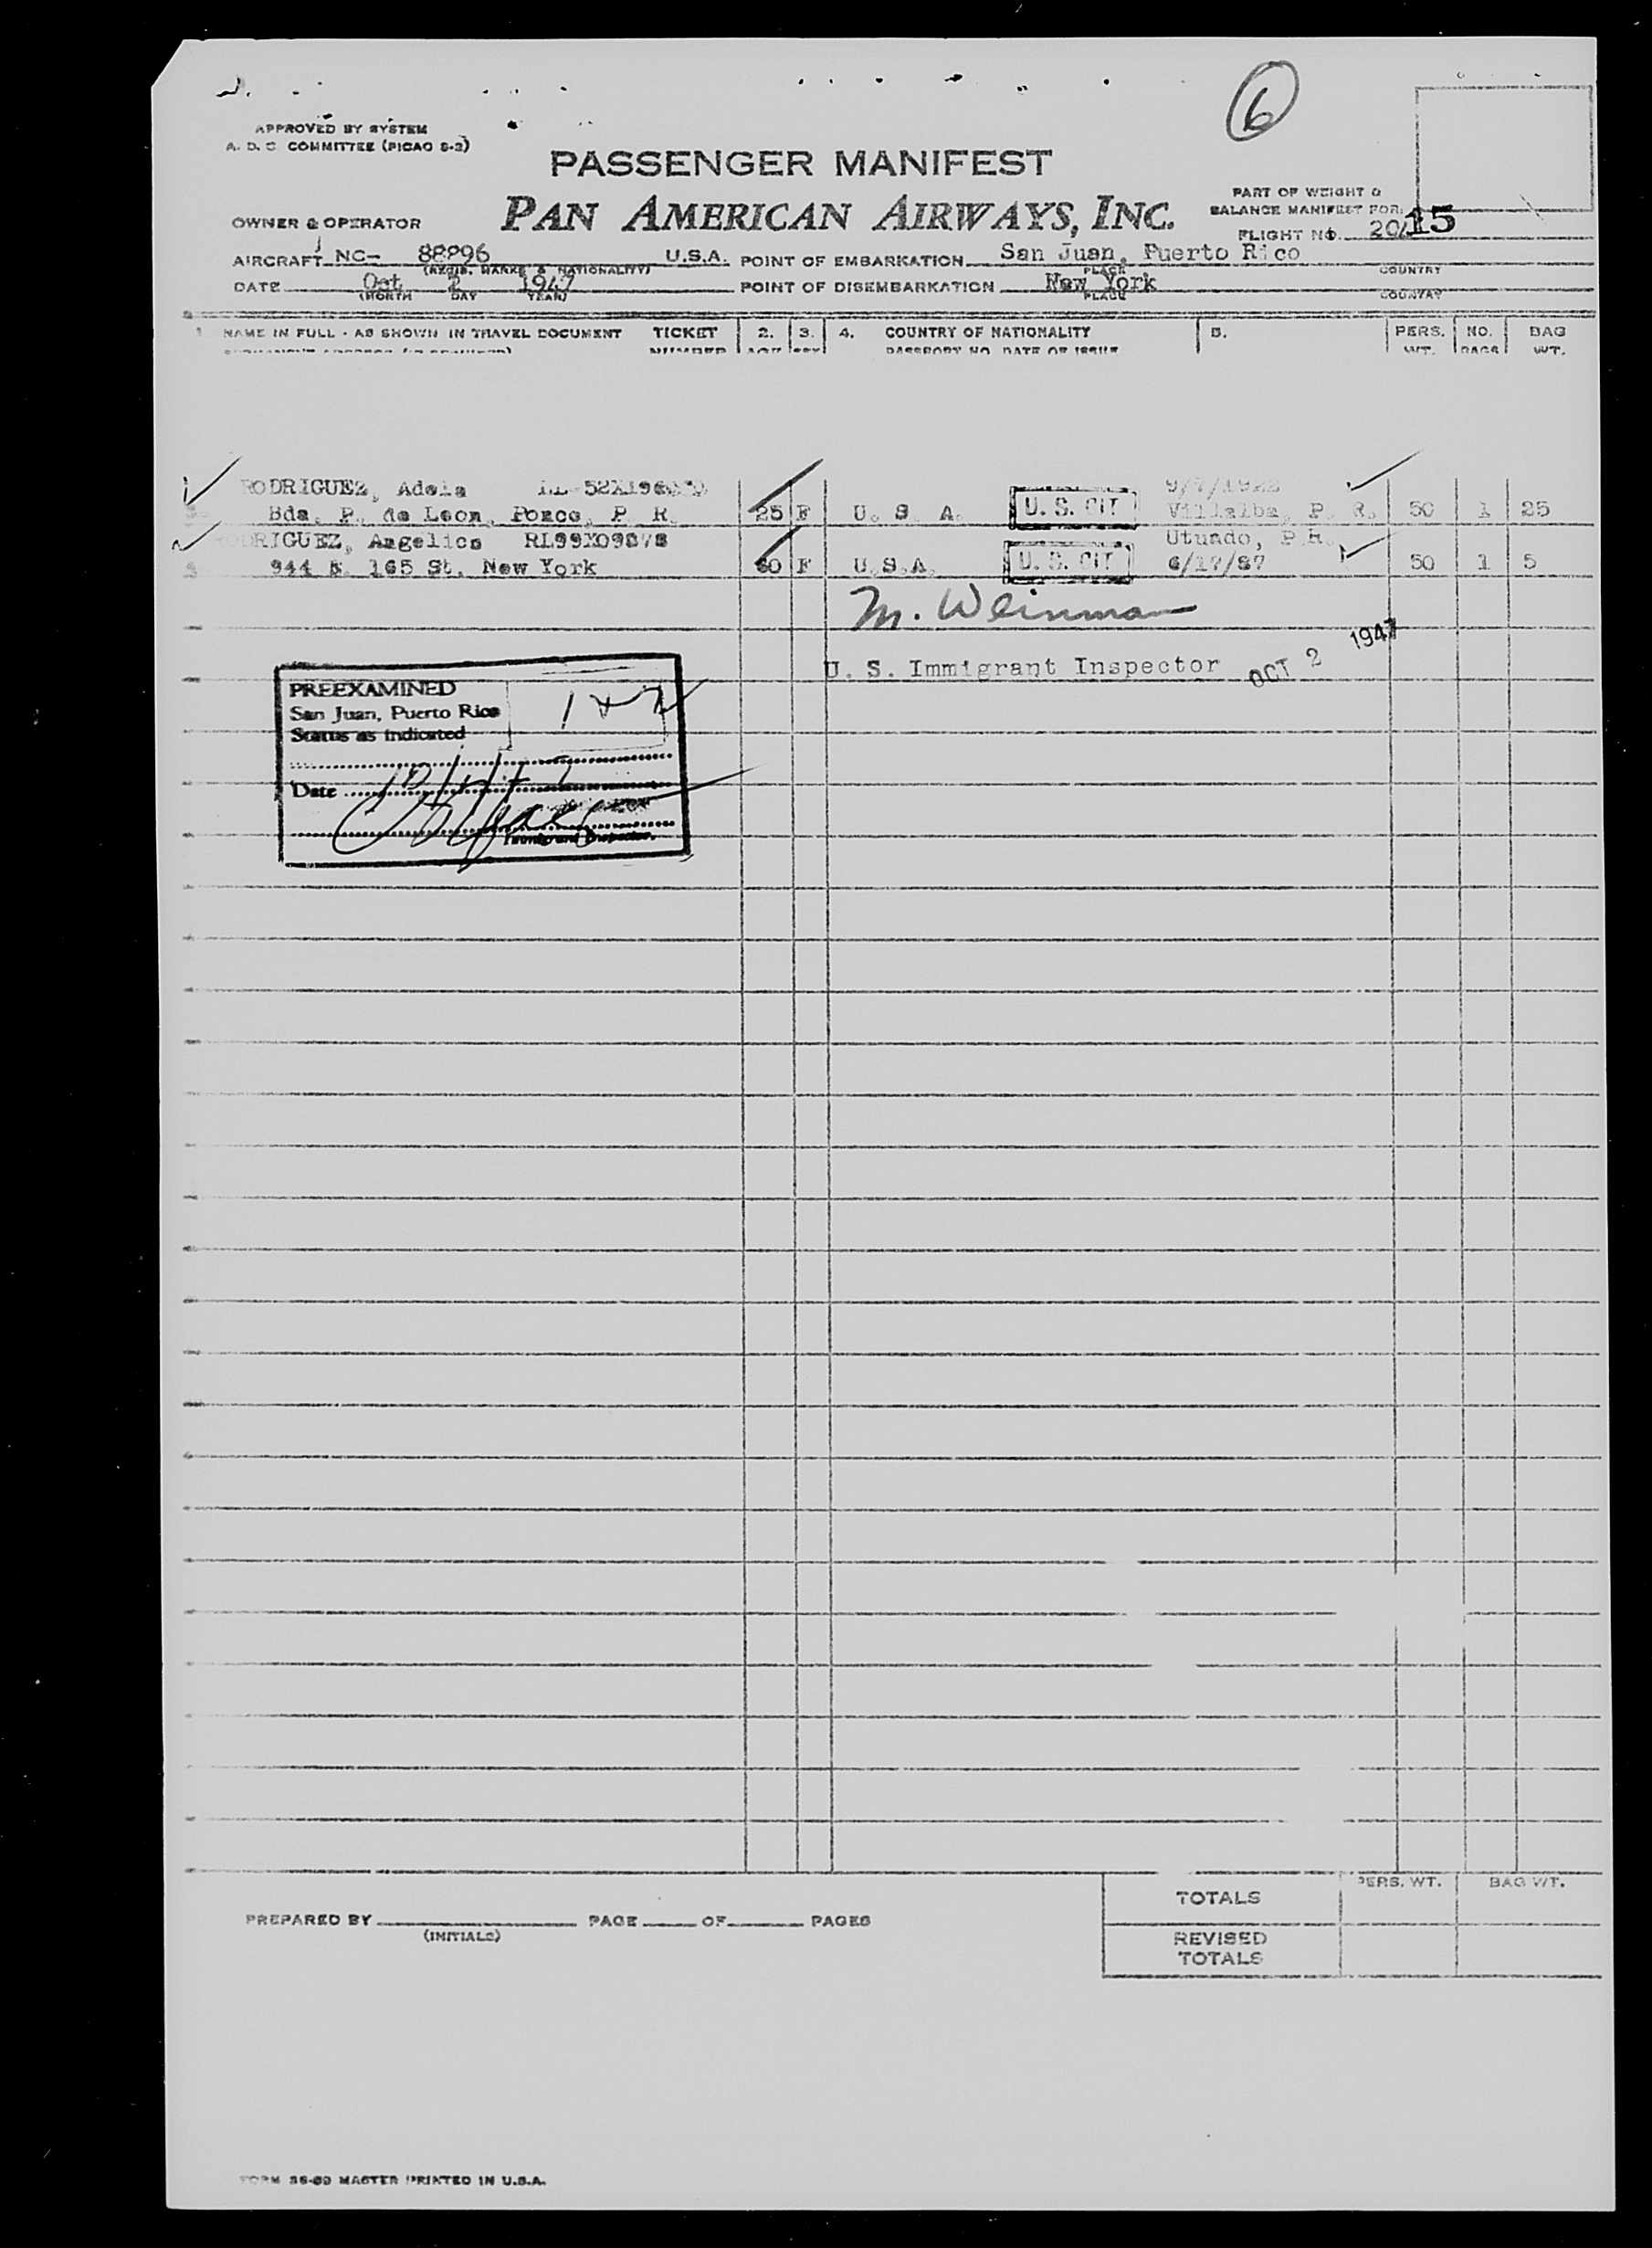 6
APPROVED BY SYSTEM
A. D. C COMMITTEE (PICAO 9-2)
PASSENGER MANIFEST
PART OF WEIGHT &
BALANCE MANIFEST FOR:
OWNER & OPERATOR
PAN AMERICAN AIRWAYS, INC.
FLIGHT NO. 15
AIRCRAFT NC- 88896 U.S.A. POINT OF EMBARKATION San Juan, Puerto Rico
(REGIS. MARKS & NATIONALITY) PLACE COUNTRY
DATE Oct 2 1947 POINT OF DISEMBARKATION New York
(MONTH DAY YEAR) PLACE COUNTRY
1 NAME IN FULL - AS SHOWN IN TRAVEL DOCUMENT TICKET 2. 3. 4. COUNTRY OF NATIONALITY 5. PERS. NO. BAG
NUMBER AGE SEX PASSPORT NO. DATE OF ISSUE WT. BAGS WT.
RODRIGUEZ, Adela 9/7/1922
Bda. P. de Leon, Ponce, P. R. 25 F U. S. A. U. S. CIT Villalba, P. R. 50 1 25
RODRIGUEZ, Angelica Utuado, P.R.
944 E. 165 St. New York 60 F U.S.A. U. S. CIT 6/17/87 50 1 5
M. Weinman
U. S. Immigrant Inspector OCT 2 1947
PREEXAMINED
San Juan, Puerto Rico
Status as indicated
Date
Immigrant Inspector.
TOTALS PERS. WT. BAG WT.
PREPARED BY PAGE OF PAGES
(INITIALS)
REVISED
TOTALS
FORM MASTER PRINTED IN U.S.A.